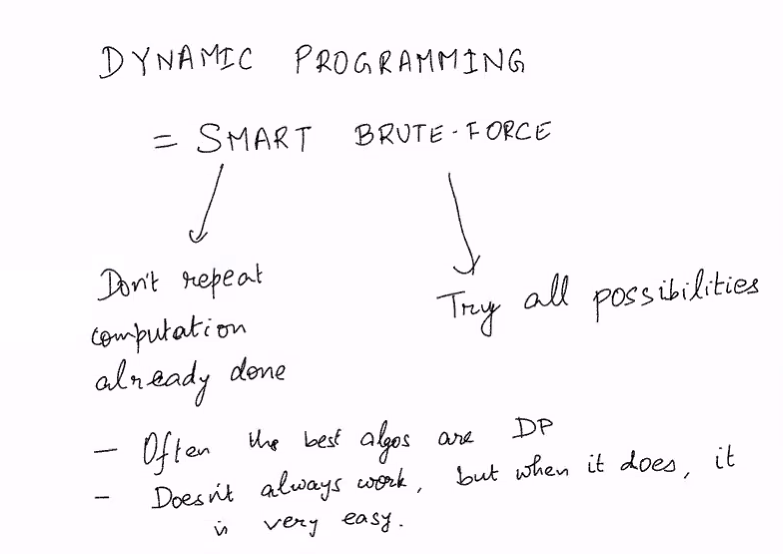 DYNAMIC PROGRAMMING
= SMART BRUTE-FORCE
Don't repeat
computation
already done
Try all possibilities
- Often the best algos are DP
- Doesn't always work, but when it does, it
is very easy.